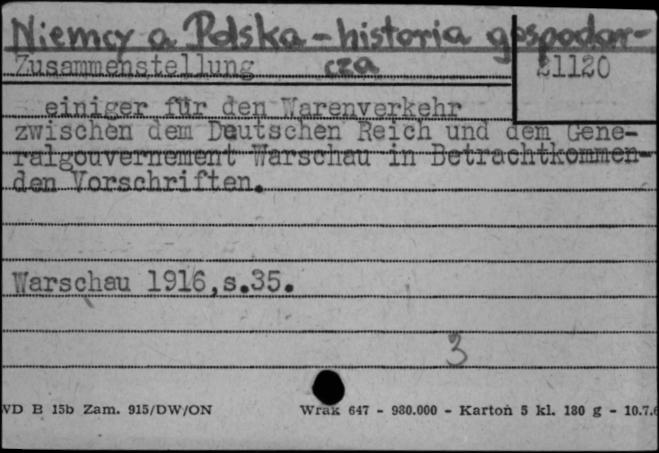 Niemcy a Polska - historia gospodar-
cza
Zusammenstellung
21120
einiger für den Warenverkehr
zwischen dem Deutschen Reich und dem Gene-
ralgouvernement Warschau in Betrachtkommen-
den Vorschriften.
Warschau 1916,s.35.
3
WD B 15b Zam. 915/DW/ON Wrak 647 - 980.000 - Kartoń 5 kl. 180 g - 10.7.6